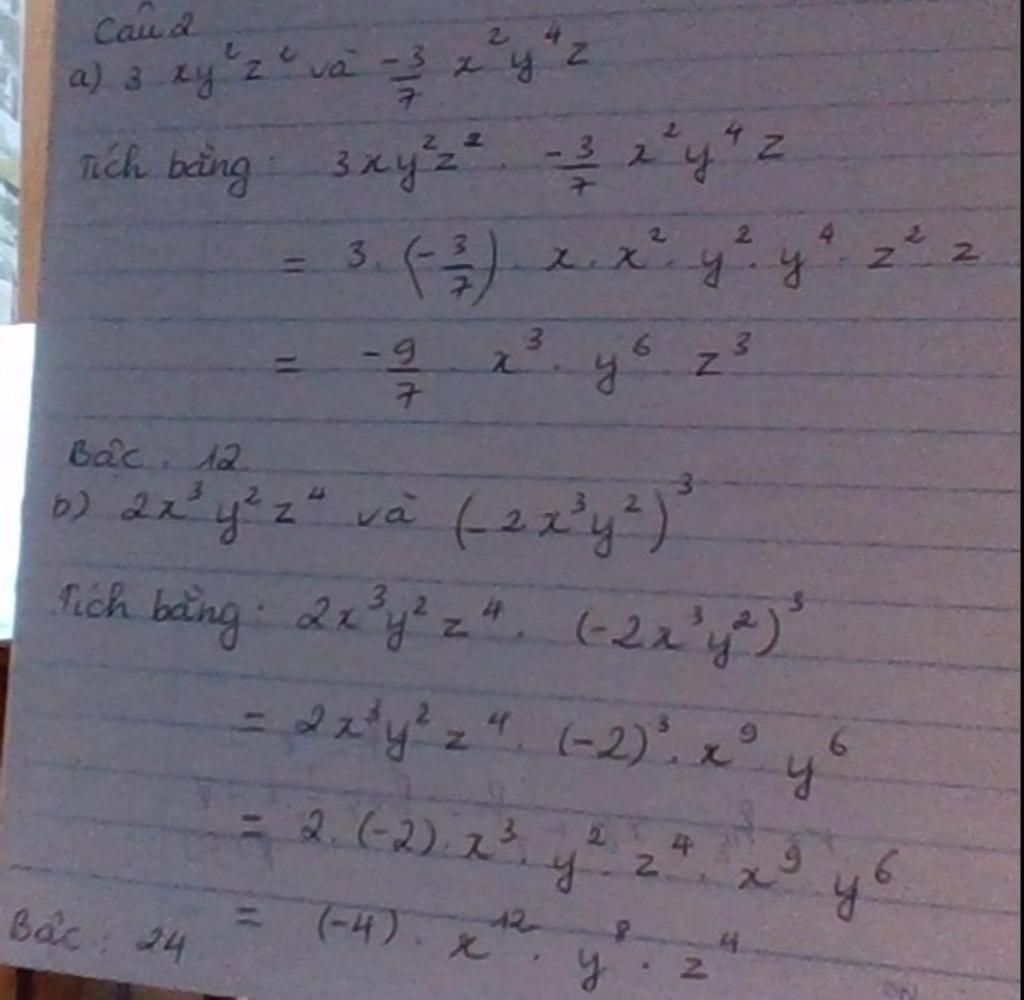 Câu 2
a) 3 xy²z² và -3/7 x²y⁴z
Tích bằng: 3xy²z² . -3/7 x²y⁴z
= 3. (-3/7) . x . x² . y² . y⁴ . z² . z
= -9/7 . x³ . y⁶ z³
Bậc : 12
b) 2x³y²z⁴ và (-2x³y²)³
Tích bằng: 2x³y²z⁴ . (-2x³y²)³
= 2x³y²z⁴ . (-2)³ . x⁹ y⁶
= 2. (-2) . x³ . y² . z⁴ . x⁹ y⁶
= (-4) . x¹² . y⁸ . z⁴
Bậc : 24